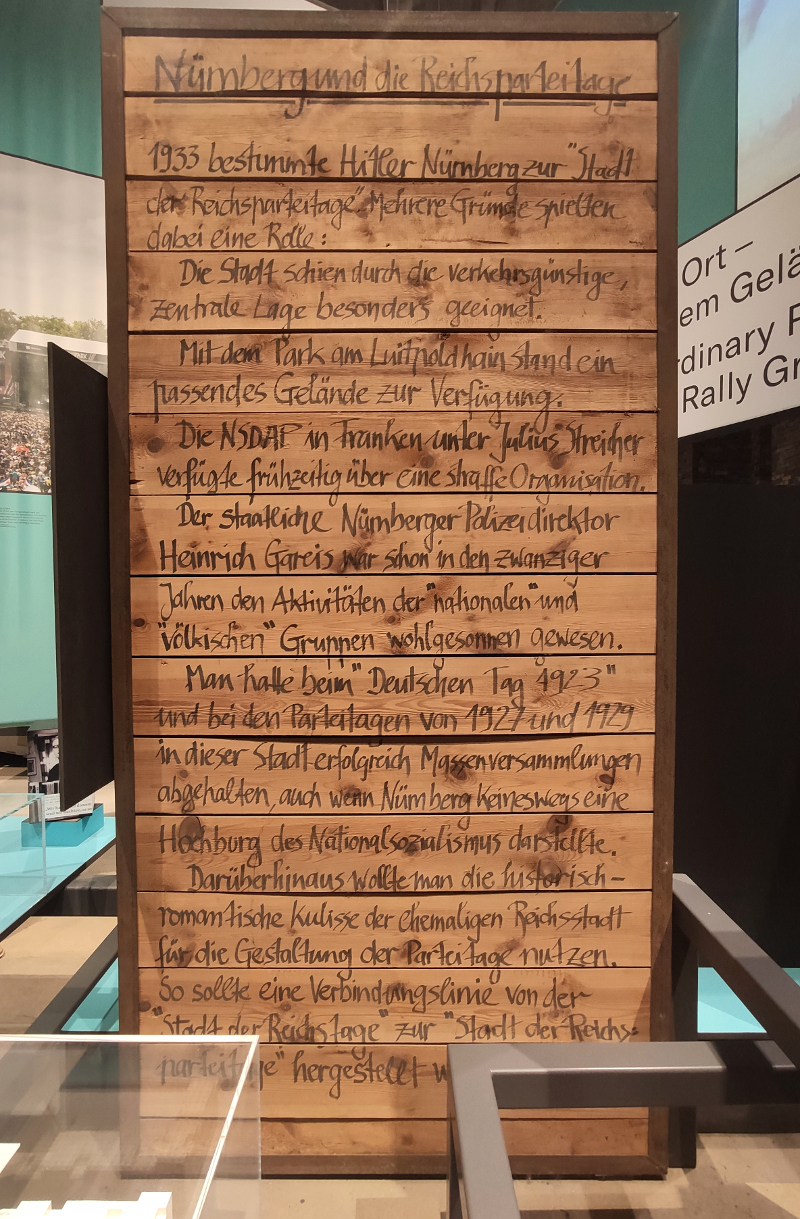 Nürnberg und die Reichsparteitage
1933 bestimmte Hitler Nürnberg zur "Stadt
der Reichsparteitage". Mehrere Gründe spielten
dabei eine Rolle:
Die Stadt schien durch die verkehrsgünstige,
zentrale Lage besonders geeignet.
Mit dem Park am Luitpoldhain stand ein
passendes Gelände zur Verfügung.
Die NSDAP in Franken unter Julius Streicher
verfügte frühzeitig über eine straffe Organisation.
Der staatliche Nürnberger Polizeidirektor
Heinrich Gareis war schon in den zwanziger
Jahren den Aktivitäten der "nationalen" und
"völkischen" Gruppen wohlgesonnen gewesen.
Man hatte beim "Deutschen Tag 1923"
und bei den Parteitagen von 1927 und 1929
in dieser Stadt erfolgreich Massenversammlungen
abgehalten, auch wenn Nürnberg keineswegs eine
Hochburg des Nationalsozialismus darstellte.
Darüberhinaus wollte man die historisch-
romantische Kulisse der ehemaligen Reichsstadt
für die Gestaltung der Parteitage nutzen.
So sollte eine Verbindungslinie von der
"Stadt der Reichstage" zur "Stadt der Reichs=
parteitage" hergestellt w
Ort –
em Gelä
rdinary
Rally Gr